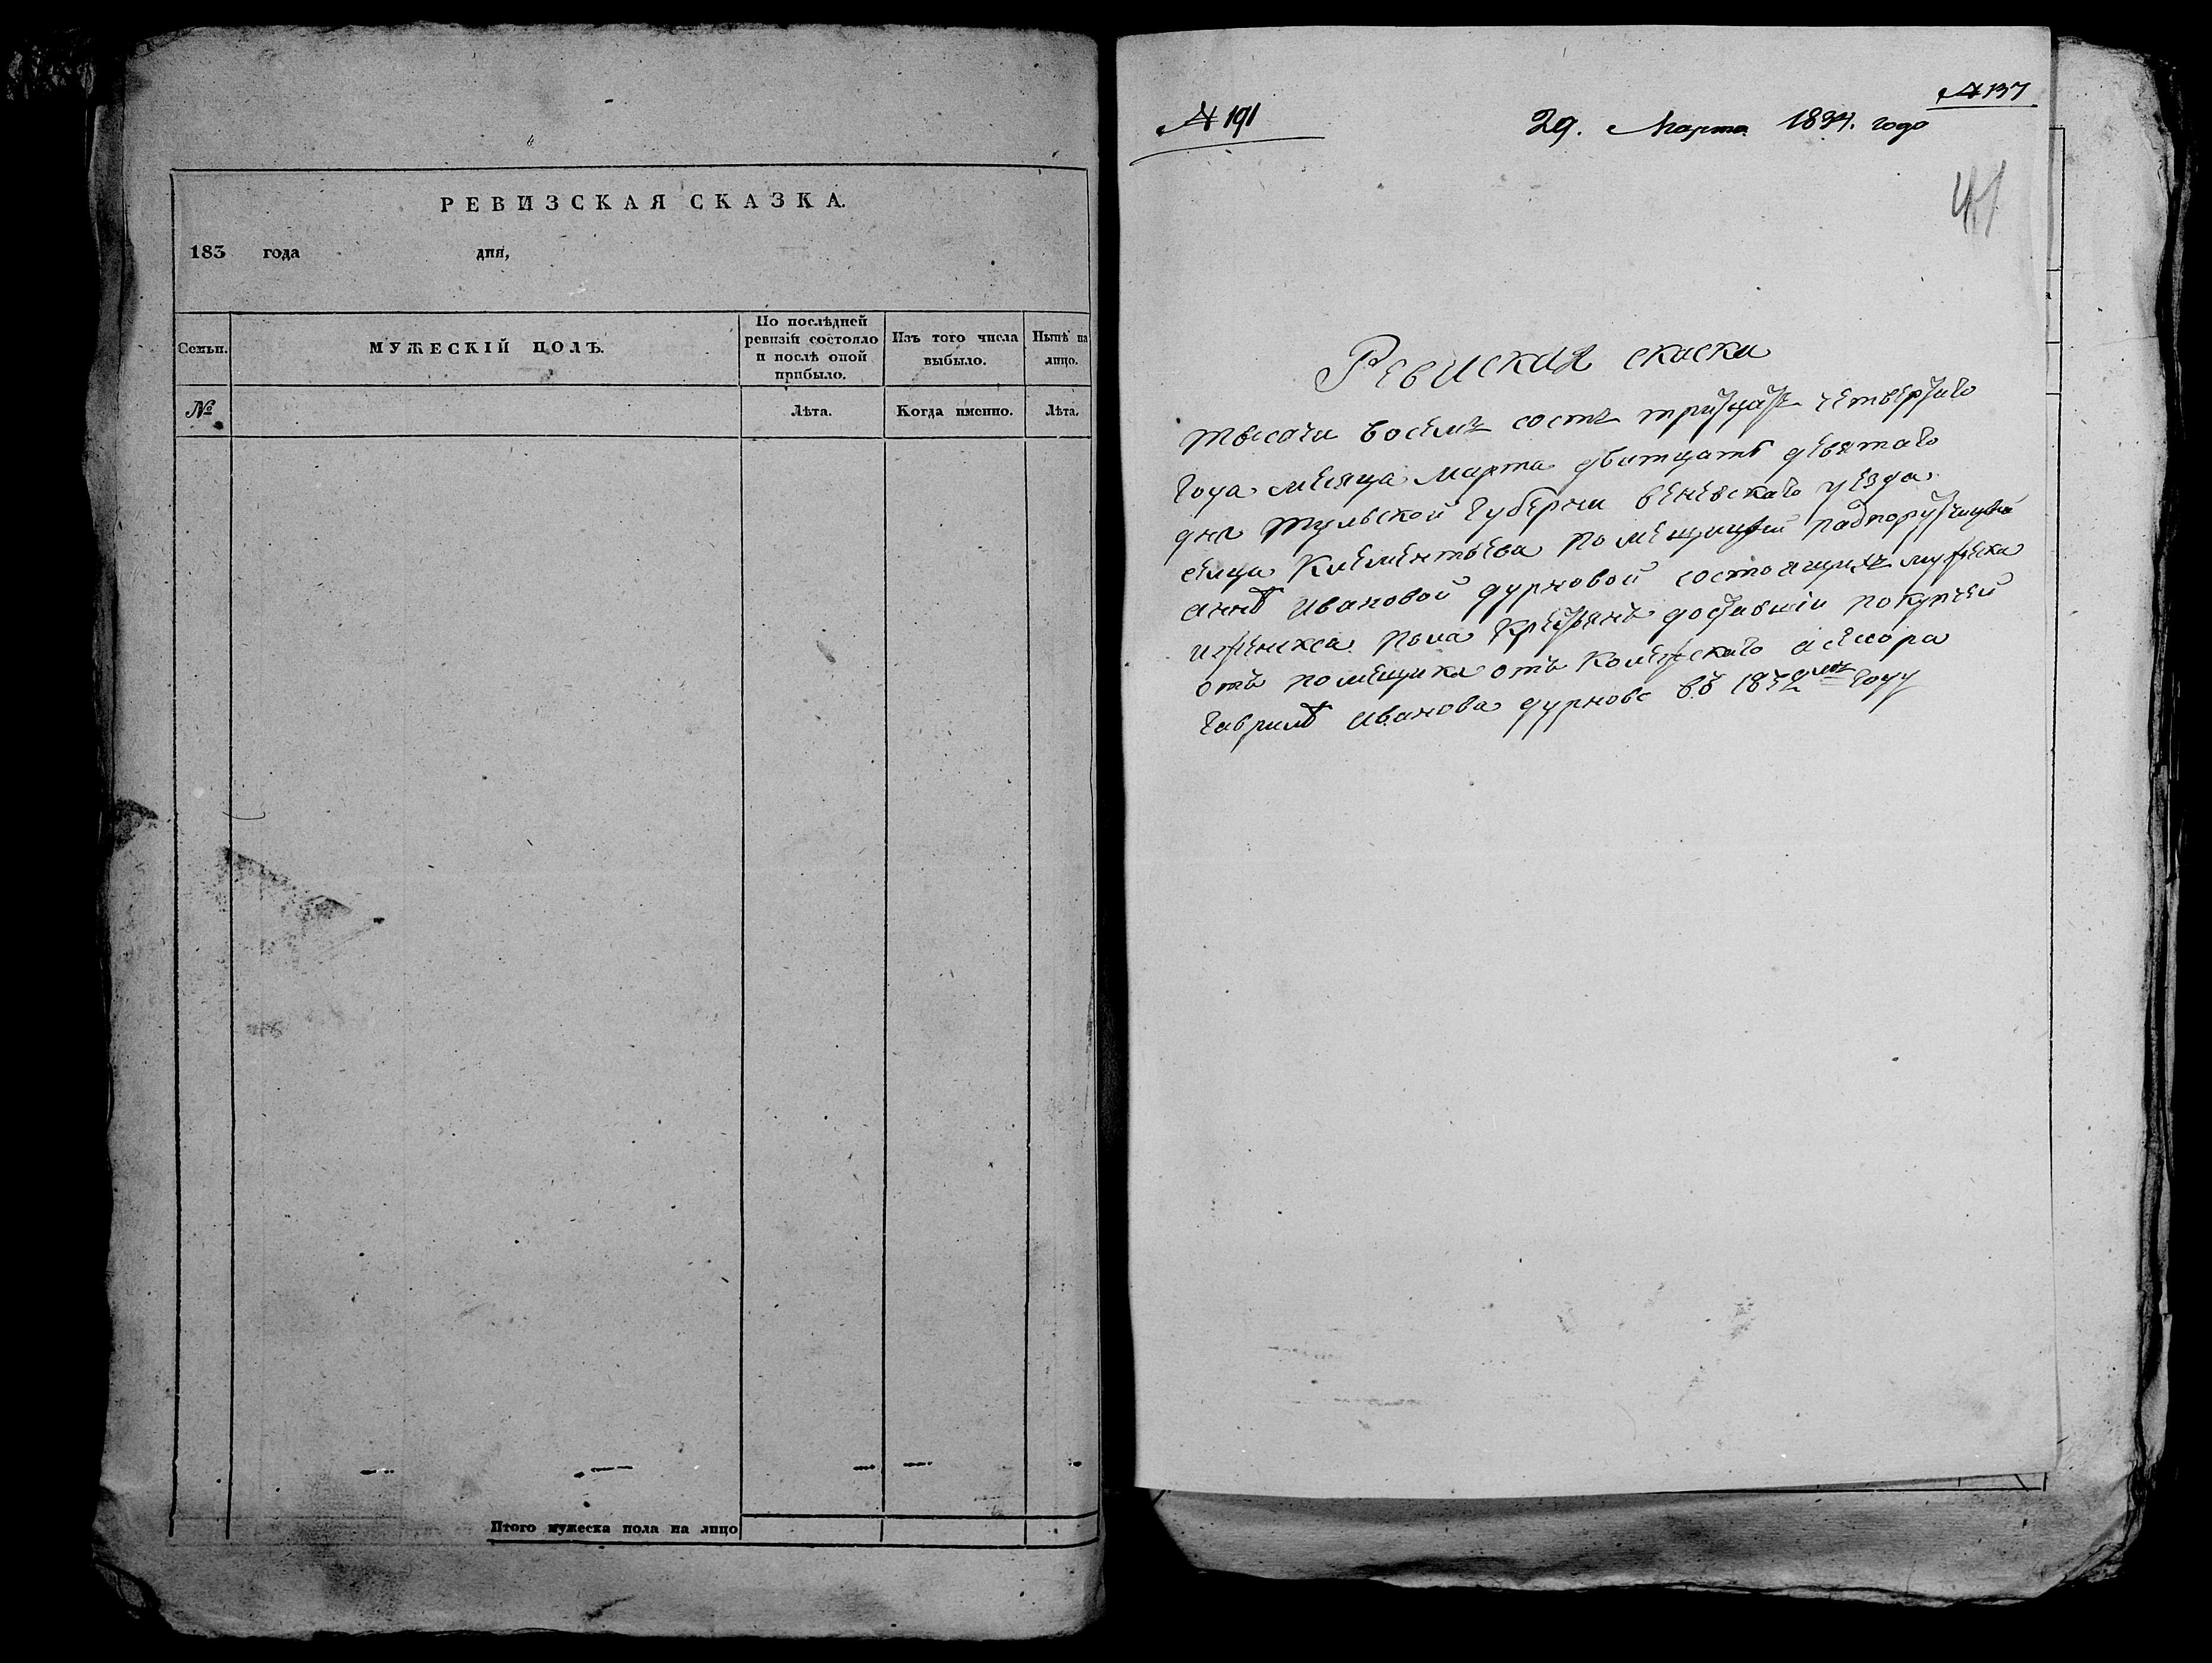 РЕВИЗСКАЯ СКАЗКА.
183 года дня,
Семьи.
МУЖЕСКІЙ ПОЛЪ.
По послѣдней
ревизіи состояло
и послѣ оной
прибыло.
Изъ того числа
выбыло.
Нынѣ на
лицо.
№
Лѣта.
Когда именно.
Лѣта.
Итого мужеска пола на лицо
№ 191
№ 137
29. Марта 1834. года
41
Ревиская скаска
тысячи восемъ сотъ тритцать четвертаго
года месяца марта дватцать девятаго
дня тульской губерни веневскаго уезда
селца Клементьева помещицей падпорутчицей
аннѣ Ивановой дурновой состоящихъ мужеска
и женска пола Крестьянъ доставшіи покупкей
отъ помещика отъ Колежскаго асесора
гаврилѣ Иванова дурнова въ 1832мъ году